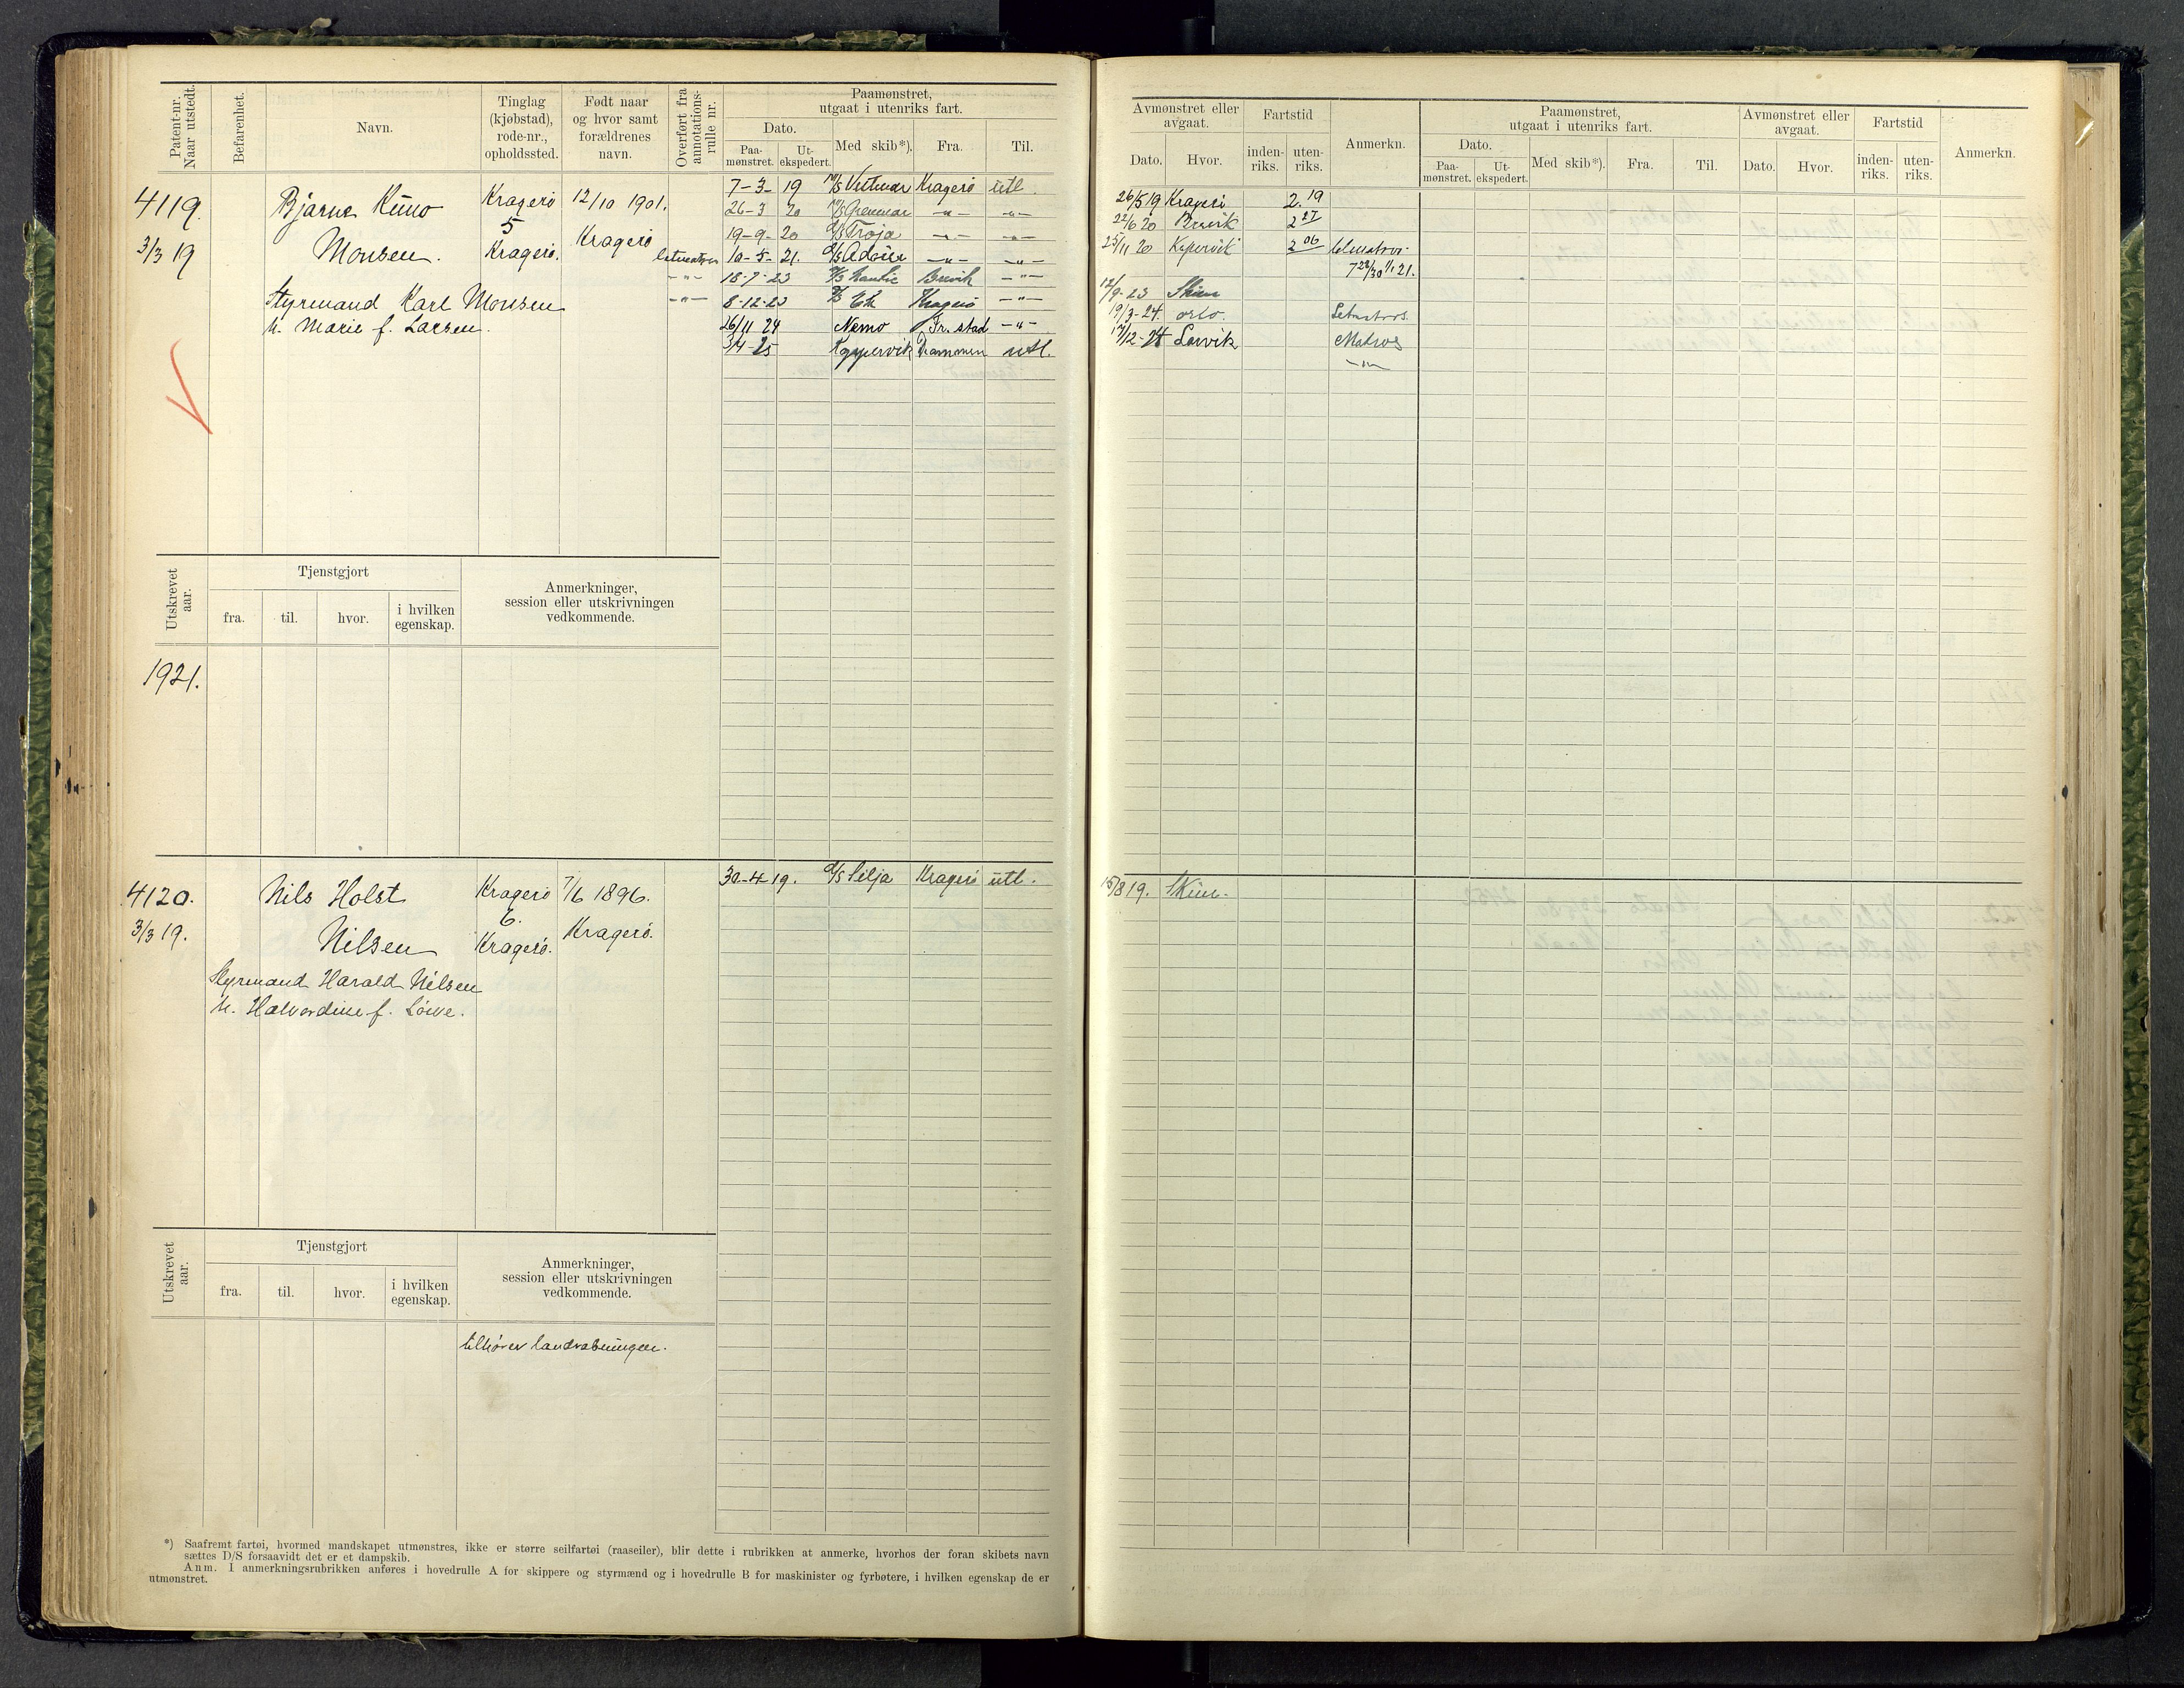 Patent-nr. Naar utstedt.
Befarenhet.
Navn.
Tinglag (kjøbstad), rode-nr., opholdssted.
Født naar og hvor samt forældrenes navn.
Overført fra annotations-rulle nr.
Paamønstret, utgaat i utenriks fart.
Dato.
Paa-mønstret.
Ut-ekspedert.
Med skib*).
Fra.
Til.
Avmønstret eller avgaat.
Dato.
Hvor.
Fartstid
inden-riks.
uten-riks.
Anmerkn.
Paamønstret, utgaat i utenriks fart.
Dato.
Paa-mønstret.
Ut-ekspedert.
Med skib*).
Fra.
Til.
Avmønstret eller avgaat.
Dato.
Hvor.
Fartstid
inden-riks.
uten-riks.
Anmerkn.
4119.
3/3 19
Bjarne Kuno
Monsen.
Styrmand Karl Monsen
h. Marie f. Larsen.
Kragerø
5
Kragerø.
12/10 1901.
Kragerø
7-3-19 Kragerø utl.
26-3 20 -"- -"-
19-9-20 D/S Troja -"- -"-
10-5-21. -"- -"-
18-7-23 Brevik -"-
8-12-23 Kragerø -"-
26/11 24 Nemo Fr.stad -"-
3/4-25 Koppervik Drammen utl.
26/5 19 Kragerø 2.19
22/6 20 Brevik 2 27
25/11 20 Kopervik 2 06
12/9-23 Skien
19/3-24. Oslo. Letmatros.
17/12-24 Larvik Matros
-"-
Utskrevet aar.
Tjenstgjort
fra.
til.
hvor.
i hvilken egenskap.
Anmerkninger, session eller utskrivningen vedkommende.
1921.
4120.
3/3 19.
Nils Holst
Nilsen
Styrmand Harald Nilsen
h. Halvordine f. Løwe.
Kragerø
6.
Kragerø.
7/6 1896.
Kragerø.
30-4 19. D/S Silja Kragerø utl.
15/8 19. Skien.
Utskrevet aar.
Tjenstgjort
fra.
til.
hvor.
i hvilken egenskap.
Anmerkninger, session eller utskrivningen vedkommende.
tilhører landrabningen.
*) Saafremt fartøi, hvormed mandskapet utmønstres, ikke er større seilfartøi (raaseiler), blir dette i rubrikken at anmerke, hvorhos der foran skibets navn
sættes D/S forsaavidt det er et dampskib.
Anm. I anmerkningsrubrikken anføres i hovedrulle A for skippere og styrmænd og i hovedrulle B for maskinister og fyrbøtere, i hvilken egenskap de er
utmønstret.